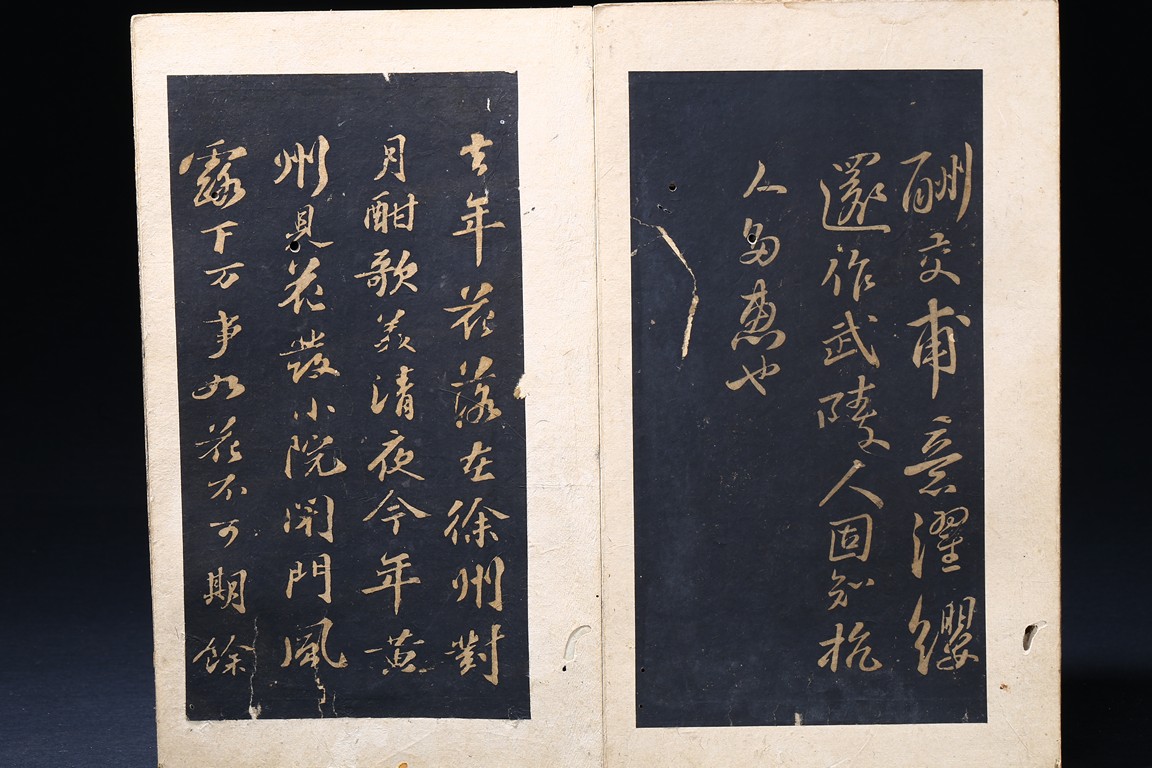 酬交甫意濯纓
還作武陵人固知
人惠也
去年花落在徐州對
月酣歌美清夜今年黃
州見花發小院閉門風
露下万事如花不可期餘